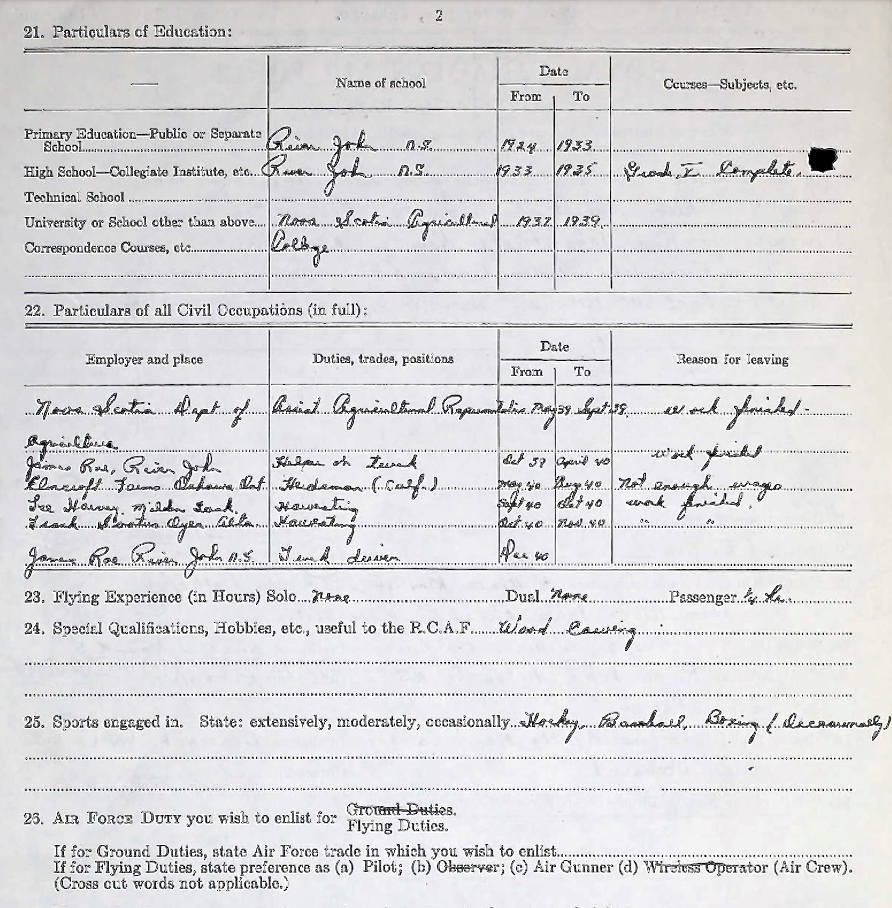 2
21. Particulars of Education:
— Name of school Date Courses—Subjects, etc.
From To
Primary Education—Public or Separate
School River John N.S. 1924 1933
High School—Collegiate Institute, etc. River John N.S. 1933 1935 Grade X Complete.
Technical School
University or School other than above Nova Scotia Agricultural 1937 1939
Correspondence Courses, etc. College
22. Particulars of all Civil Occupations (in full):
Employer and place Duties, trades, positions Date Reason for leaving
From To
Nova Scotia Dept of Assist Agricultural Representative May 39 Sept 39 work finished -
Agriculture
James Roe, River John Helper on truck Oct 39 April 40 work finished
Farms Oshawa Ont. Herdsman (Calf.) May 40 Aug 40 Not enough wages
Lee Harvey, Harvesting Sept 40 Oct 40 work finished.
Frank Oyen Alta. Harvesting Oct. 40 Nov. 40 " "
James Roe River John N.S. Truck driver Dec 40
23. Flying Experience (in Hours) Solo None Dual None Passenger ¼ hr.
24. Special Qualifications, Hobbies, etc., useful to the R.C.A.F. Wood Carving
25. Sports engaged in. State: extensively, moderately, occasionally Hockey, Baseball, Boxing (Occasionally)
26. AIR FORCE DUTY you wish to enlist for Ground Duties.
Flying Duties.
If for Ground Duties, state Air Force trade in which you wish to enlist
If for Flying Duties, state preference as (a) Pilot; (b) Observer; (c) Air Gunner (d) Wireless Operator (Air Crew).
(Cross out words not applicable.)